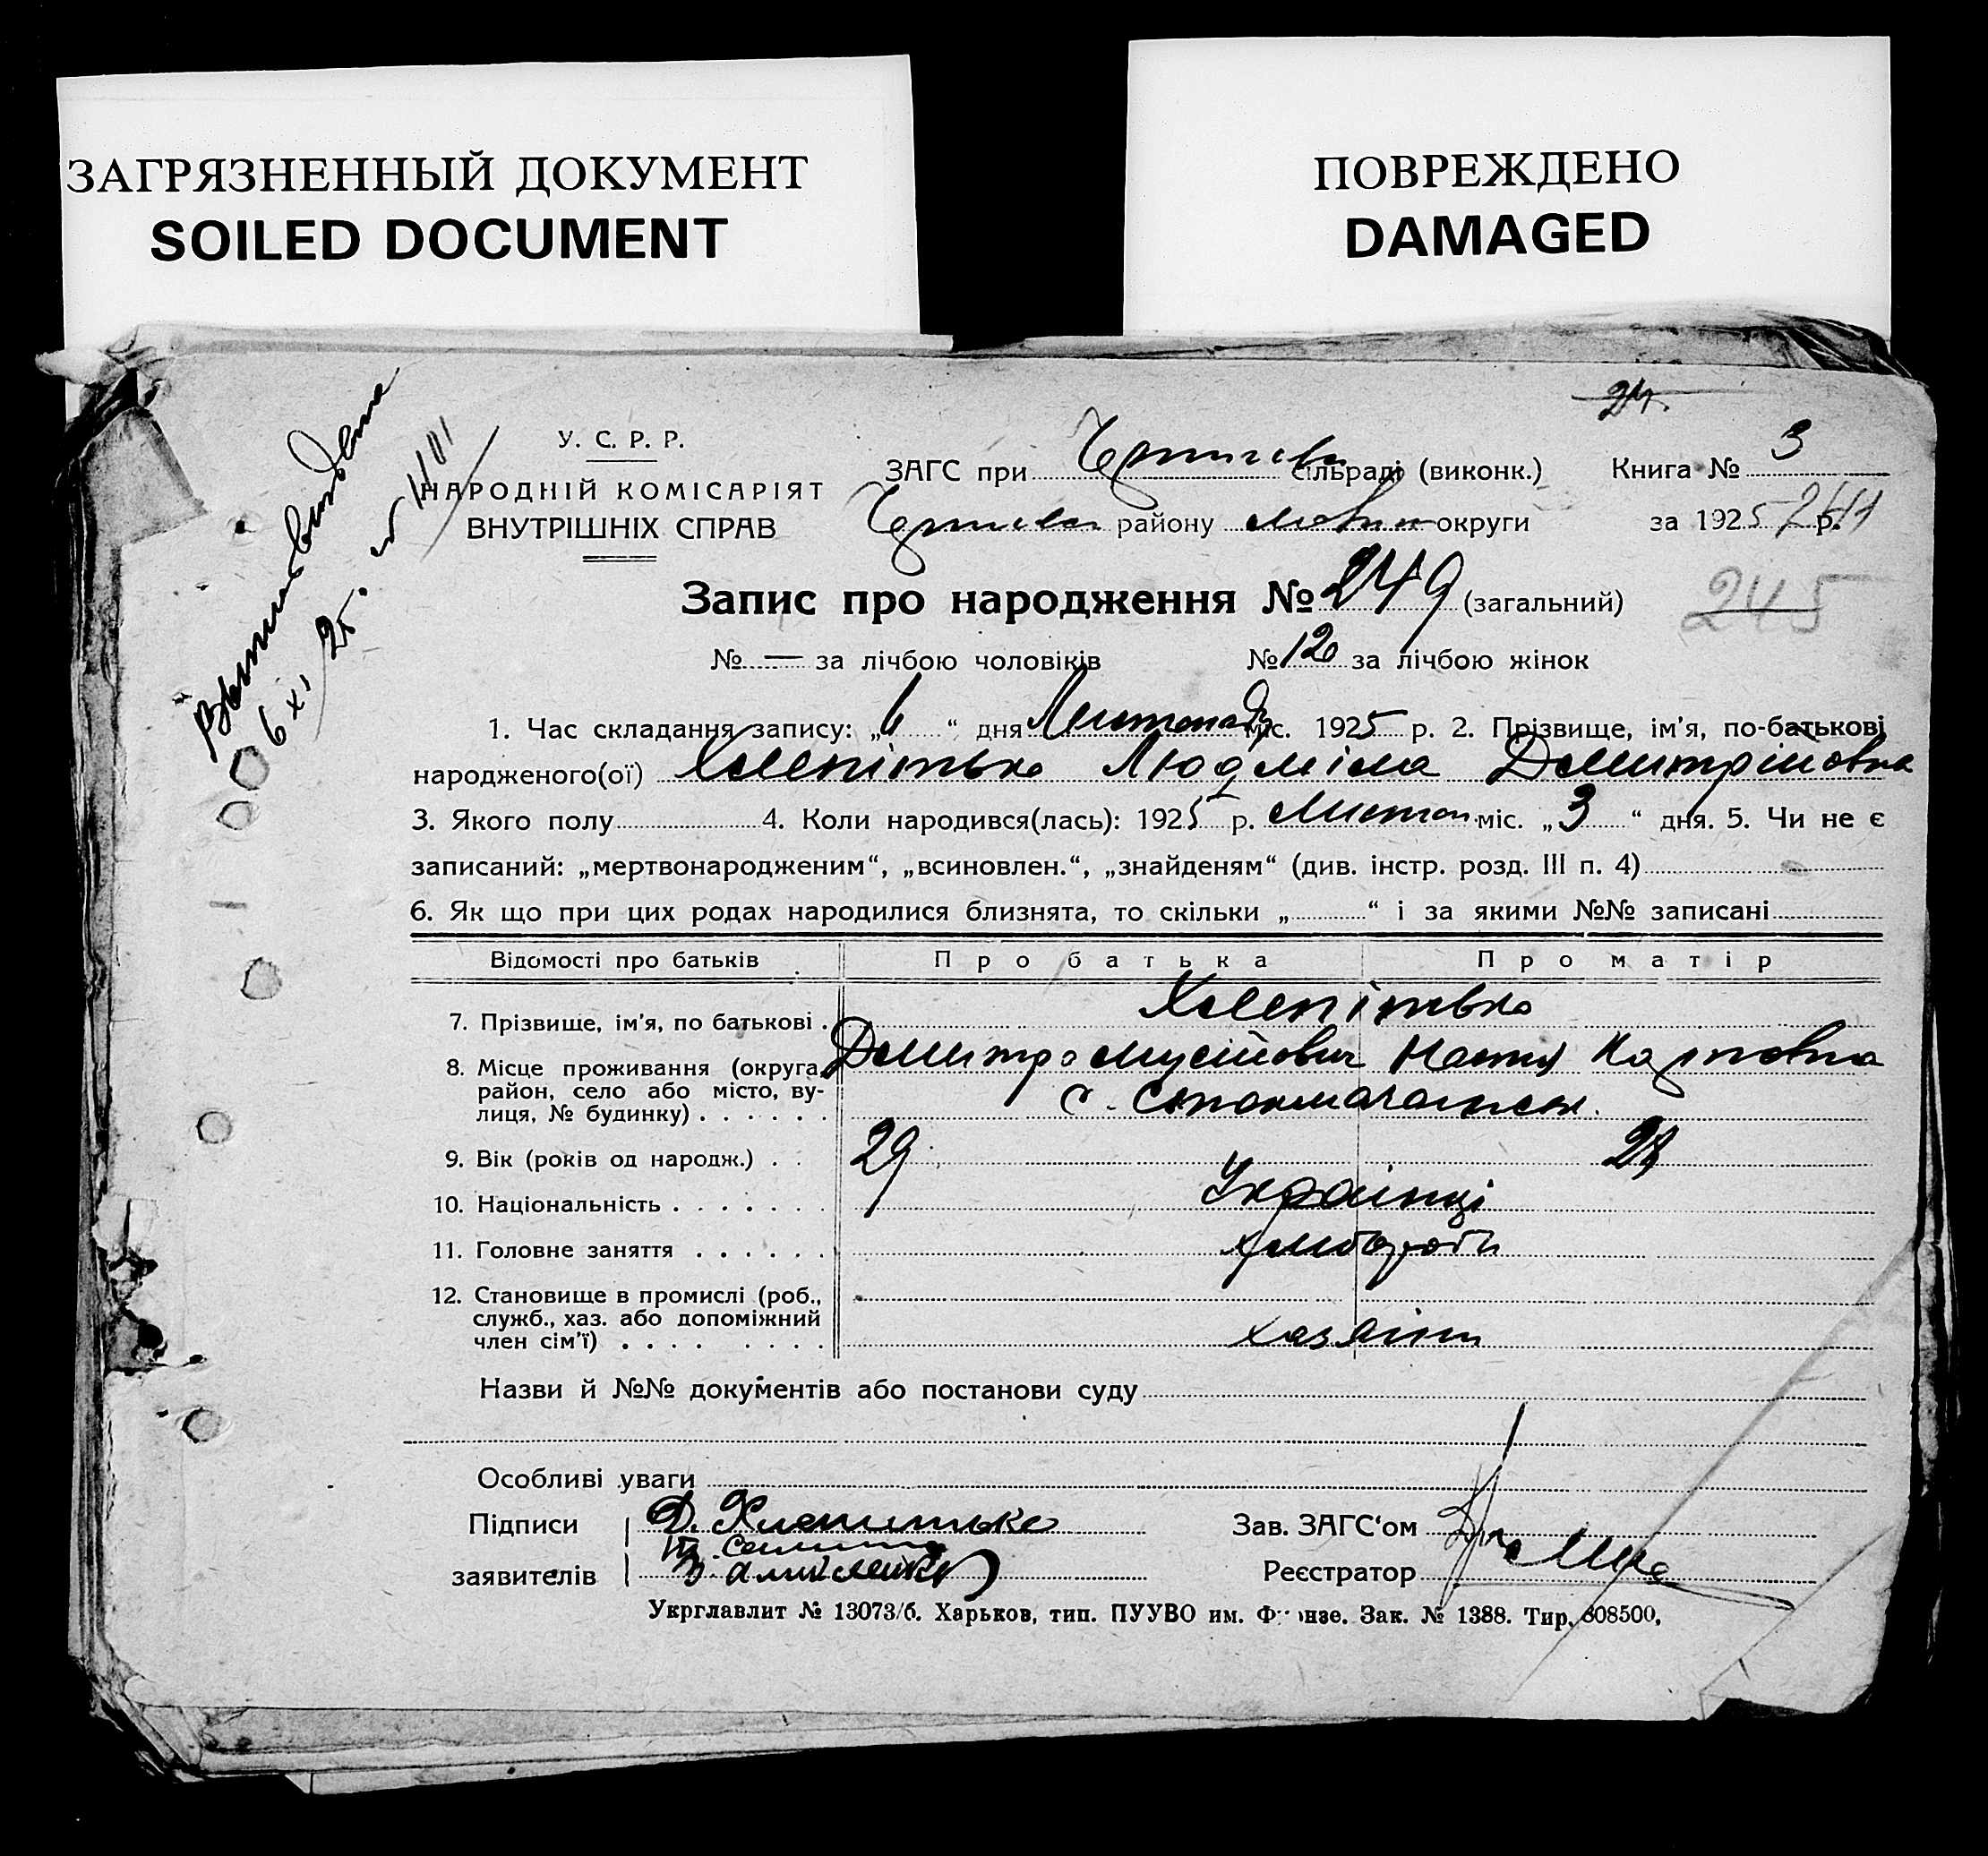 ЗАГРЯЗНЕННЫЙ ДОКУМЕНТ
SOILED DOCUMENT
ПОВРЕЖДЕНО
DAMAGED
24.
У. С. Р. Р.
НАРОДНІЙ КОМІСАРІЯТ
ВНУТРІШНІХ СПРАВ
6 XI 25. № 1101
ЗАГС при сільраді (виконк.) Книга № 3
району округи за 1925 р.
Запис про народження № 249 (загальний) 245
№ — за лічбою чоловіків № 120 за лічбою жінок
1. Час складання запису: „6“ дня Листопад міс. 1925 р. 2. Прізвище, ім'я, по-батькові
народженого(ої) Хлепітько Людміла Дмитрійовна
3. Якого полу 4. Коли народився(лась): 1925 р. Листоп. міс. „3“ дня. 5. Чи не є
записаний: „мертвонародженим“, „всиновлен.“, „знайденям“ (див. інстр. розд. III п. 4)
6. Як що при цих родах народилися близнята, то скільки „ “ і за якими №№ записані
Відомості про батьків Про батька Про матір
7. Прізвище, ім'я, по батькові . Хлепітько
Дмитро Мусійович Настя Карповна
8. Місце проживання (округа, район, село або місто, вулиця, № будинку) . . . . . . с.
9. Вік (років од народж.) . . 29
10. Національність . . . . . . . Українці
11. Головне заняття . . . . . . хлібороби
12. Становище в промислі (роб., служб., хаз. або допоміжний член сім'ї) . . . . . . . . хазяіни
Назви й №№ документів або постанови суду
Особливі уваги
Підписи Д. Хлепитько Зав. ЗАГС'ом
заявителів Реєстратор
Укрглавлит № 13073/б. Харьков, тип. ПУУВО им. Фрунзе. Зак. № 1388. Тир. 808500,